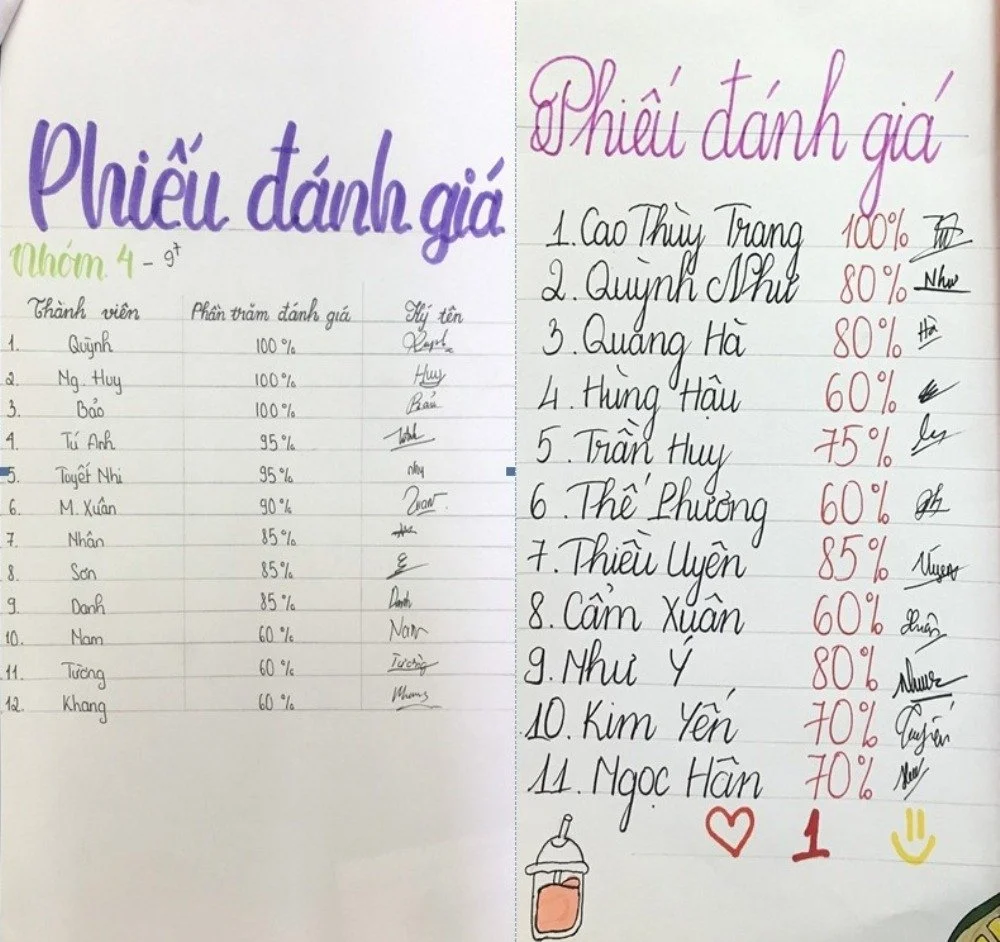 Phiếu đánh giá
Nhóm 4 - 9⁷
Thành viên Phần trăm đánh giá Ký tên
1. Quỳnh 100%
2. Ng. Huy 100% Huy
3. Bảo 100% Bảo
4. Tú Anh 95%
5. Tuyết Nhi 95%
6. M. Xuân 90% Xuân
7. Nhân 85%
8. Sơn 85%
9. Danh 85% Danh
10. Nam 60% Nam
11. Tường 60% Tường
12. Khang 60%
Phiếu đánh giá
1. Cao Thùy Trang 100%
2. Quỳnh Như 80% Như
3. Quang Hà 80% Hà
4. Hùng Hậu 60%
5. Trần Huy 75%
6. Thế Phương 60%
7. Thiều Uyên 85% Uyên
8. Cẩm Xuân 60% Xuân
9. Như Ý 80%
10. Kim Yến 70%
11. Ngọc Hân 70%
1